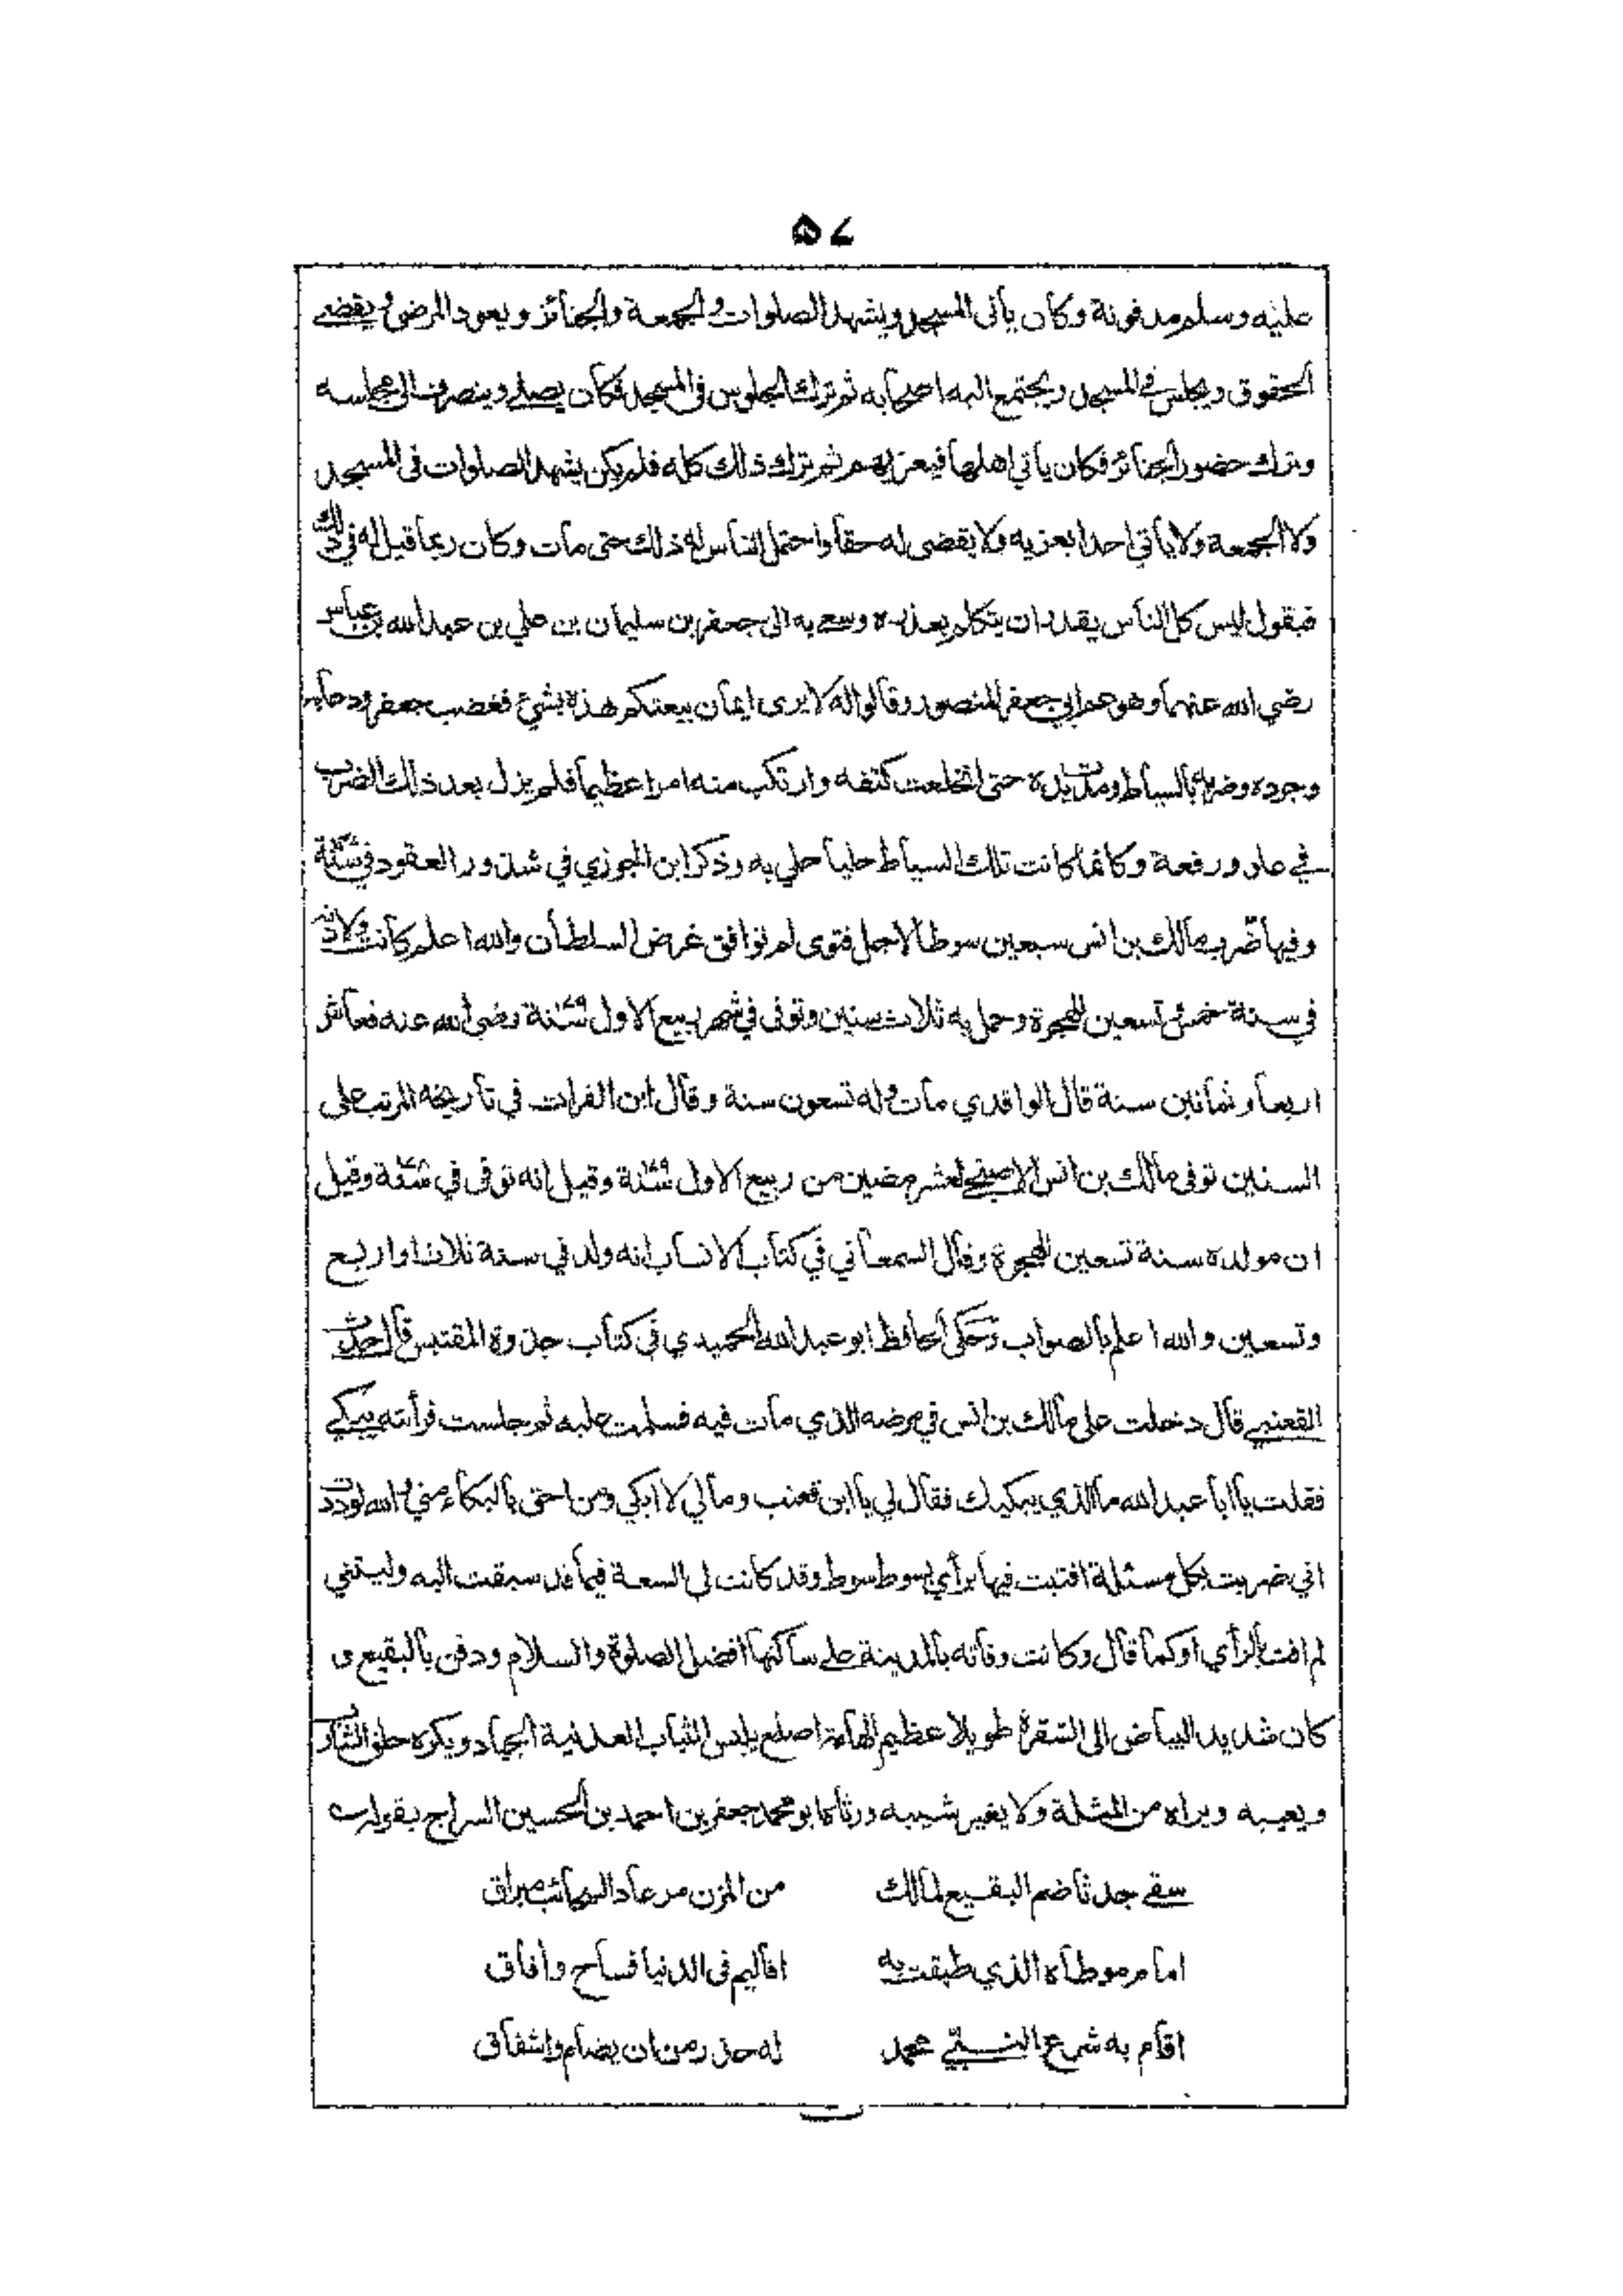 ٥٧
عليه وسلم مدفونة وكان يأتى المسجد ويشهد الصلوات والجمعة والجنائز ويعود المرضى ويقضي
الحقوق ويجلس في المسجد ويجتمع اليه اصحابه ثم ترك الجلوس فى المسجد فكان يصلي وينصرف الى مجلسه
وترك حضور الجنائز فكان يأتي اهلها فيعزيهم ثم ترك ذلك كله فلم يكن يشهد الصلوات فى المسجد
ولا الجمعة ولا يأتي احدا يعزيه ولا يقضى له حقا واحتمل الناس له ذلك حتى مات وكان ربما قيل له في ذلك
فيقول ليس كل الناس يقدر ان يتكلم بعذره وسعي به الى جعفر بن سليمان بن علي بن عبد الله بن عباس
رضي الله عنهما وهو عم ابي جعفر المنصور وقالوا له لا يرى ايمان بيعتكم هذه بشيء فغضب جعفر ودعا به
وجرده وضربه بالسياط ومدت يده حتى انخلعت كتفه وارتكب منه امرا عظيما فلم يزل بعد ذلك الضرب
في علو ورفعة وكانما كانت تلك السياط حليا حلي به وذكر ابن الجوزي في شذور العقود في سنة
وفيها ضرب مالك بن انس سبعين سوطا لاجل فتوى لم توافق غرض السلطان والله اعلم كانت ولادته
في سنة خمس وتسعين للهجرة وحمل به ثلاث سنين وتوفى في شهر ربيع الاول سنة رضي الله عنه فعاش
اربعا وثمانين سنة قال الواقدي مات وله تسعون سنة وقال ابن الفرات في تاريخه المرتب على
السنين توفى مالك بن انس الاصبحي لعشر مضين من ربيع الاول سنة وقيل انه توفى في سنة وقيل
ان مولده سنة تسعين للهجرة وقال السمعاني في كتاب الانساب انه ولد في سنة ثلاث او اربع
وتسعين والله اعلم بالصواب وحكى الحافظ ابو عبد الله الحميدي في كتاب جذوة المقتبس قال حدث
القعنبي قال دخلت على مالك بن انس في مرضه الذي مات فيه فسلمت عليه ثم جلست فرأته يبكي
فقلت يا ابا عبد الله ما الذي يبكيك فقال لي يا ابن قعنب ومالي لا ابكي ومن احق بالبكاء مني والله لوددت
اني ضربت بكل مسئلة افتيت فيها برأي بسوط سوط وقد كانت لي السعة فيما قد سبقت اليه وليتني
لم افت بالرأي او كما قال وكانت وفاته بالمدينة على ساكنها افضل الصلوة والسلام ودفن بالبقيع و
كان شديد البياض الى الشقرة طويلا عظيم الهامة اصلع يلبس الثياب العدنية الجياد ويكره حلق الشارب
ويعيبه ويراه من المثلة ولا يغير شيبه ورثاه ابو محمد جعفر بن احمد بن الحسين السراج بقوله
سقى جدثا ضم البقيع لمالك من المزن مرعاد السحائب مبراق
امام موطاه الذي طبقت به اقاليم في الدنيا فساح وآفاق
اقام به شرع النبي محمد له حذر من ان يضام واشفاق